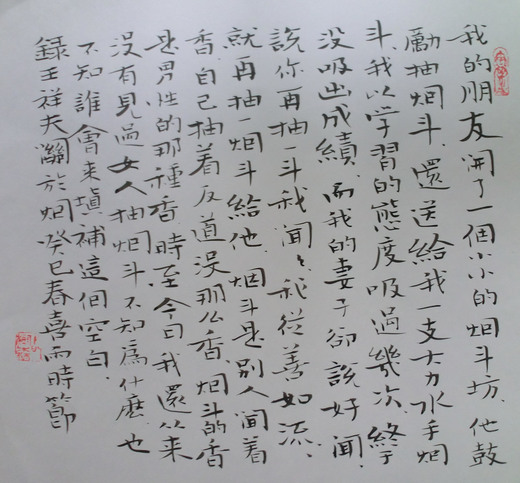 我的朋友開了一個小小的烟斗坊.他鼓
勵抽烟斗.還送給我一支大力水手烟
斗.我以学習的態度吸過幾次.終于
没吸出成績.而我的妻子卻說好聞.
說你再抽一斗我聞聞.我從善如流.
就再抽一烟斗給他.烟斗是别人聞着
香.自己抽着反道没那么香.烟斗的香
是男性的那種香.時至今日我還從来
没有見過女人抽烟斗不知為什麽.也
不知誰會来填補這個空白.
録王祥夫關於烟癸巳春喜雨時節